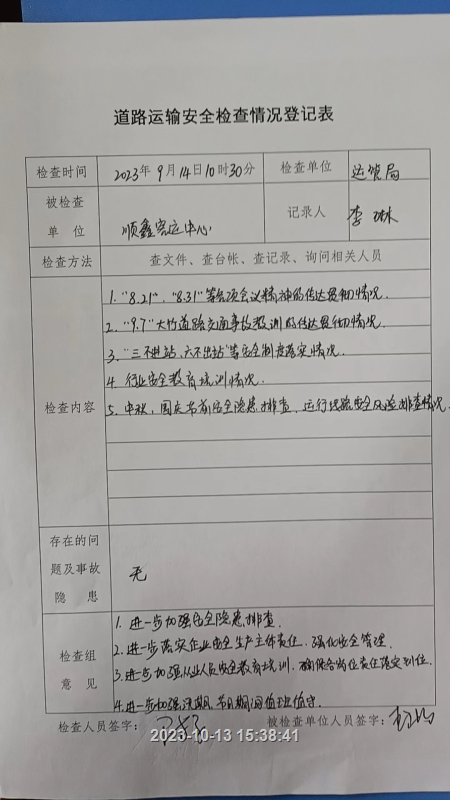 道路运输安全检查情况登记表
检查时间 2023年9月14日10时30分 检查单位 运管局
被检查
单位 顺鑫客运中心 记录人 李琳
检查方法 查文件、查台帐、查记录、询问相关人员
检查内容
1."8.21"、"8.31"等各项会议精神的传达贯彻情况.
2."9.7"大竹道路交通事故教训的传达贯彻情况.
3."三不进站、六不出站"等安全制度落实情况.
4.行业安全教育培训情况.
5.中秋、国庆节前安全隐患排查、运行线路安全风险排查情况.
存在的问
题及事故
隐患 无
检查组
意见
1.进一步加强安全隐患排查.
2.进一步落实企业安全生产主体责任、强化安全管理.
3.进一步加强从业人员安全教育培训、确保各岗位责任落实到位.
4.进一步加强汛期、节日期间值班值守.
检查人员签字: 被检查单位人员签字:
2023-10-13 15:38:41